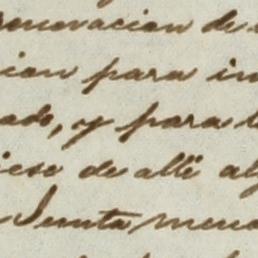 renovacion de
cion para in
ado, y para l
iese de allí al
Junta men